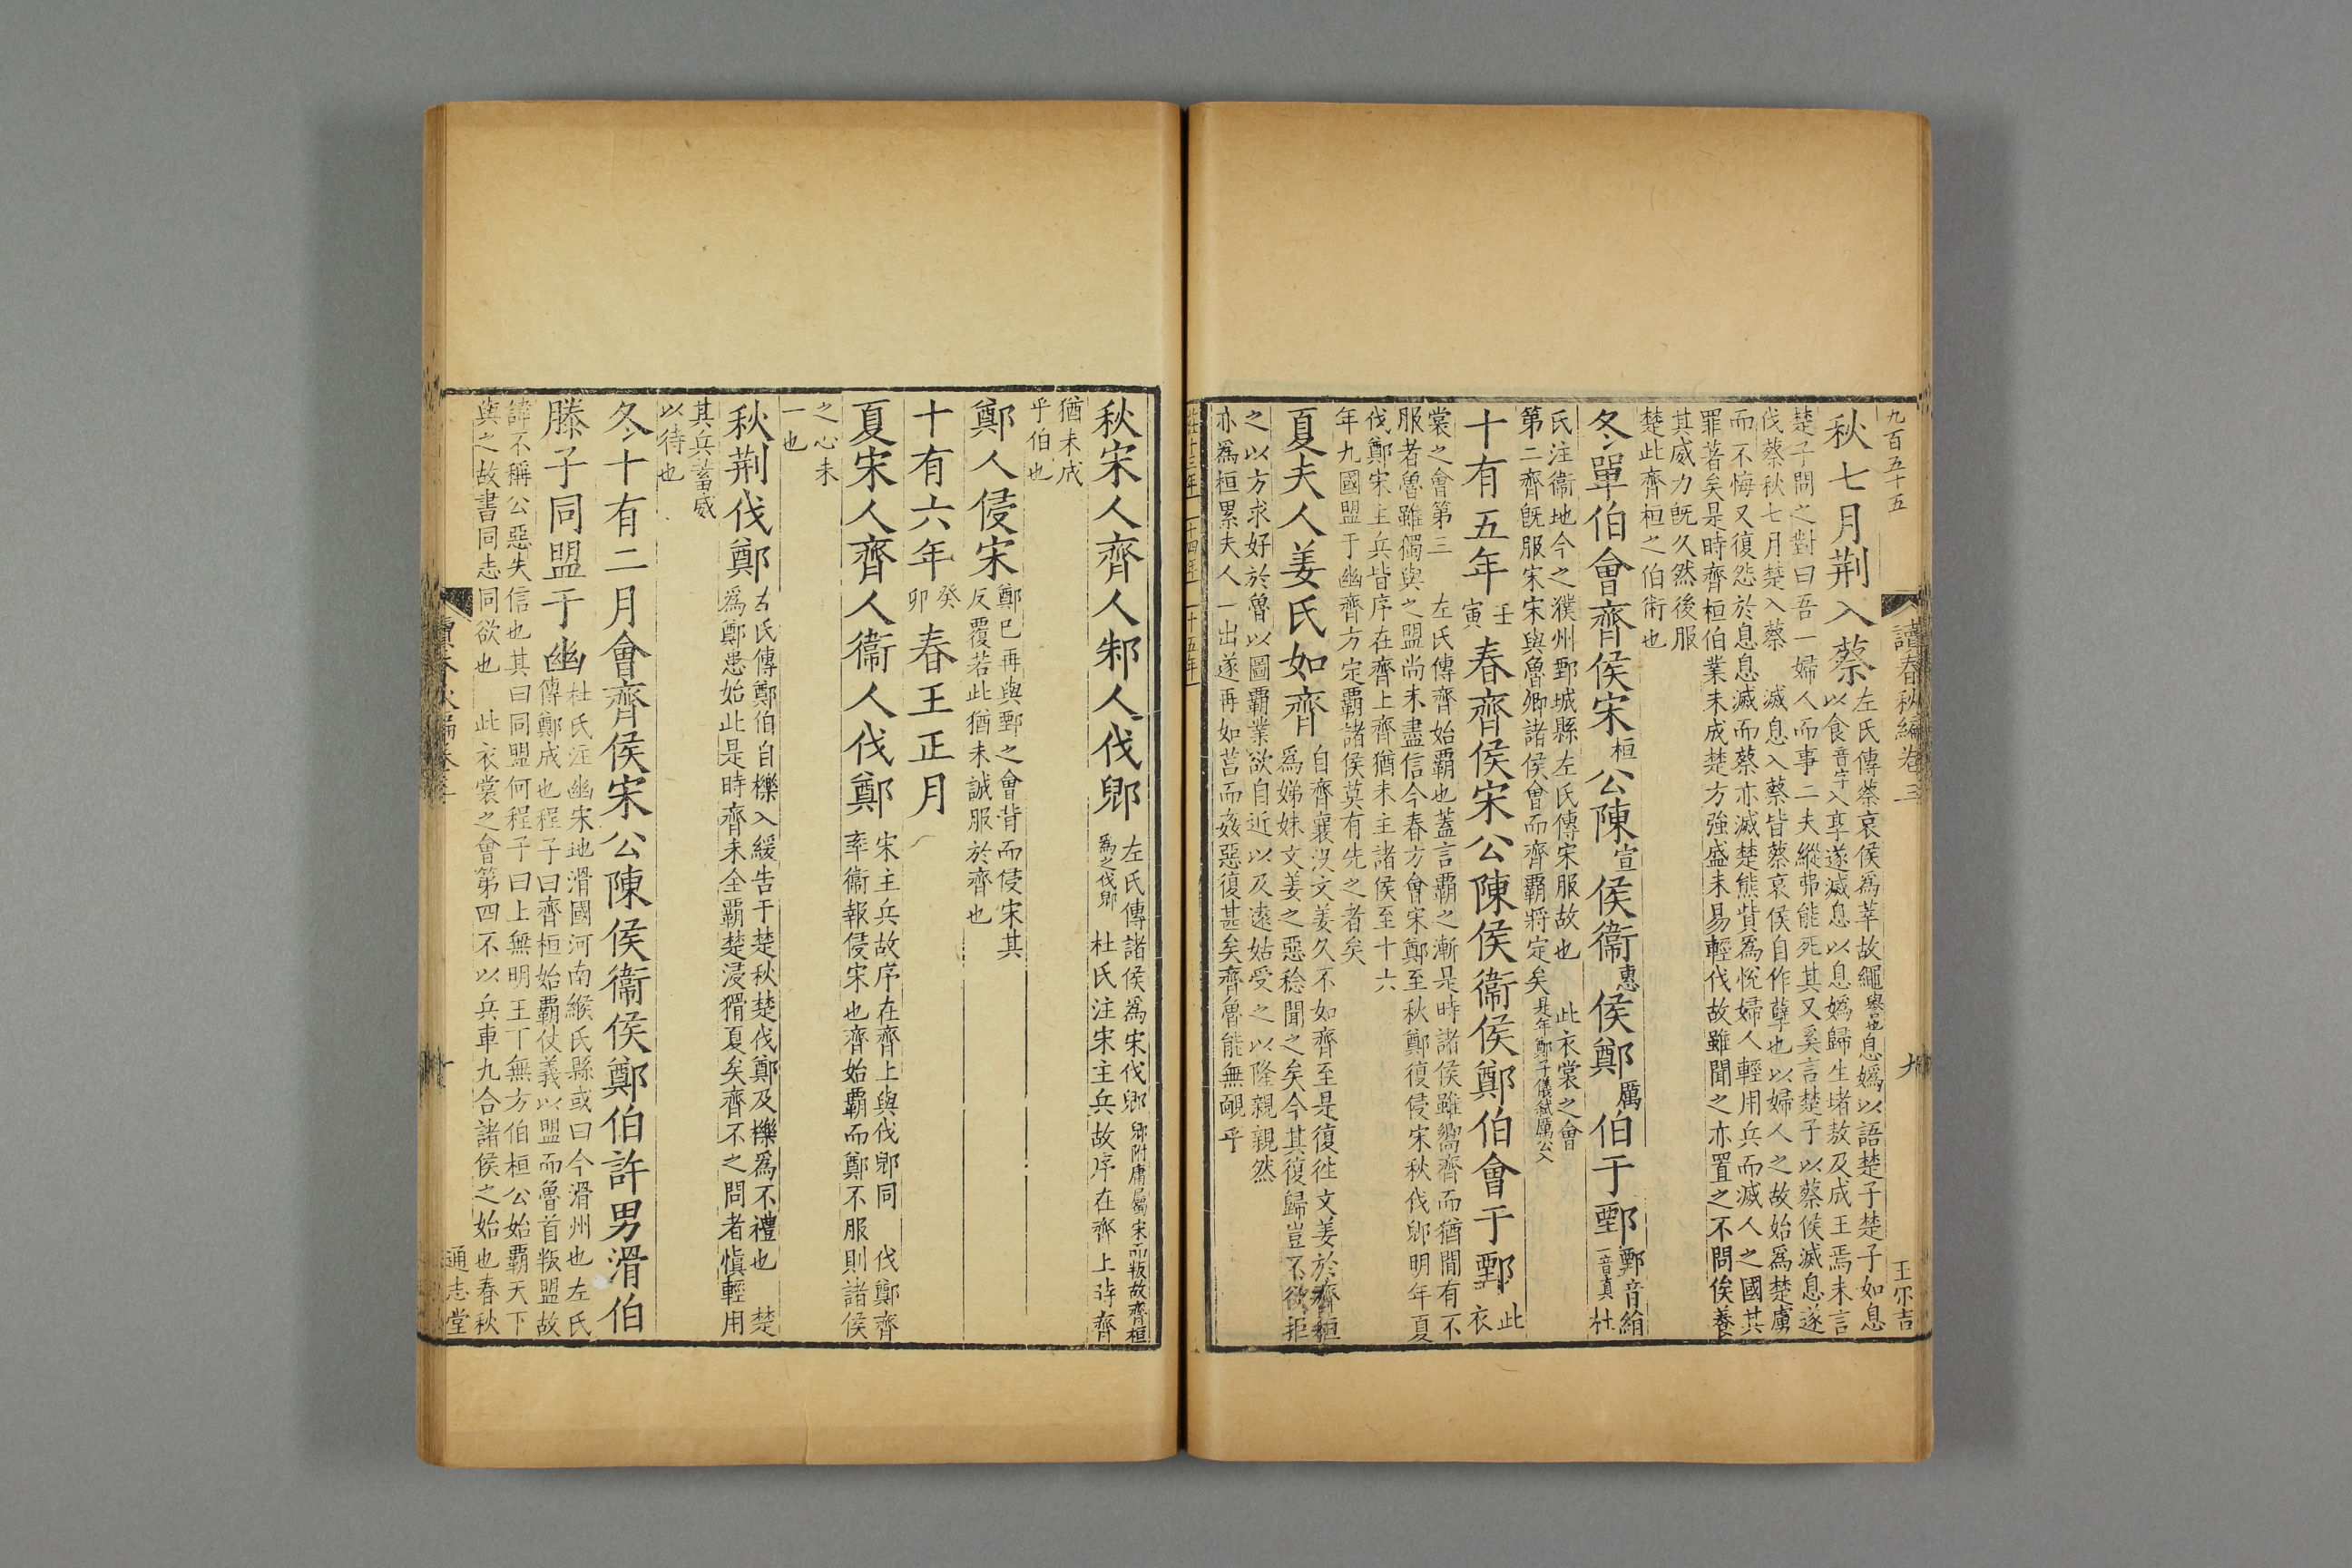 九百五十五
讀春秋編卷三
九
王尔吉
秋七月荆入蔡
左氏傳蔡哀侯爲莘故繩譽也息嬀以語楚子楚子如息
以食音字入享遂滅息以息嬀歸生堵敖及成王焉未言
楚子問之對曰吾一婦人而事二夫縱弗能死其又奚言楚子以蔡侯滅息遂
伐蔡秋七月楚入蔡 滅息入蔡皆蔡哀侯自作孽也以婦人之故始爲楚虜
而不悔又復怨於息息滅而蔡亦滅楚熊貲爲悅婦人輕用兵而滅人之國其
罪著矣是時齊桓伯業未成楚方強盛未易輕伐故雖聞之亦置之不問俟養
其威力旣久然後服
楚此齊桓之伯術也
冬單伯會齊侯宋桓公陳宣侯衞惠侯鄭厲伯于鄄
鄄音絹
一音真 杜
氏注衞地今之濮州鄄城縣左氏傳宋服故也 此衣裳之會
第二齊旣服宋宋與魯卿諸侯會而齊覇將定矣是年鄭子儀弑厲公入
十有五年壬寅春齊侯宋公陳侯衞侯鄭伯會于鄄
此
衣
裳之會第三 左氏傳齊始覇也蓋言覇之漸是時諸侯雖嚮齊而猶間有不
服者魯雖獨與之盟尚未盡信今春方會宋鄭至秋鄭復侵宋秋伐郳明年夏
伐鄭宋主兵皆序在齊上齊猶未主諸侯至十六
年九國盟于幽齊方定覇諸侯莫有先之者矣
夏夫人姜氏如齊
自齊襄沒文姜久不如齊至是復徃文姜於齊桓
爲娣妹文姜之惡稔聞之矣今其復歸豈不欲拒
之以方求好於魯以圖覇業欲自近以及遠姑受之以隆親親然
亦爲桓累夫人一出遂再如莒而姦惡復甚矣齊魯能無覥乎
莊十三年 十四年 十五年
秋宋人齊人邾人伐郳
左氏傳諸侯爲宋伐郳郳附庸屬宋而叛故齊桓
爲之伐郳 杜氏注宋主兵故序在齊上時齊
猶未成
乎伯也
鄭人侵宋
鄭已再與鄄之會背而侵宋其
反覆若此猶未誠服於齊也
十有六年癸卯春王正月
夏宋人齊人衞人伐鄭
宋主兵故序在齊上與伐郳同 伐鄭齊
率衞報侵宋也齊始覇而鄭不服則諸侯
之心未
一也
秋荆伐鄭
左氏傳鄭伯自櫟入緩告于楚秋楚伐鄭及櫟爲不禮也 楚
爲鄭患始此是時齊未全覇楚浸猾夏矣齊不之問者愼輕用
其兵蓄威
以待也
冬十有二月會齊侯宋公陳侯衞侯鄭伯許男滑伯
滕子同盟于幽
杜氏注幽宋地滑國河南緱氏縣或曰今滑州也左氏
傳鄭成也程子曰齊桓始覇仗義以盟而魯首叛盟故
諱不稱公惡失信也其曰同盟何程子曰上無明王下無方伯桓公始覇天下
與之故書同志同欲也 此衣裳之會第四不以兵車九合諸侯之始也春秋
讀春秋編卷三
十
通志堂